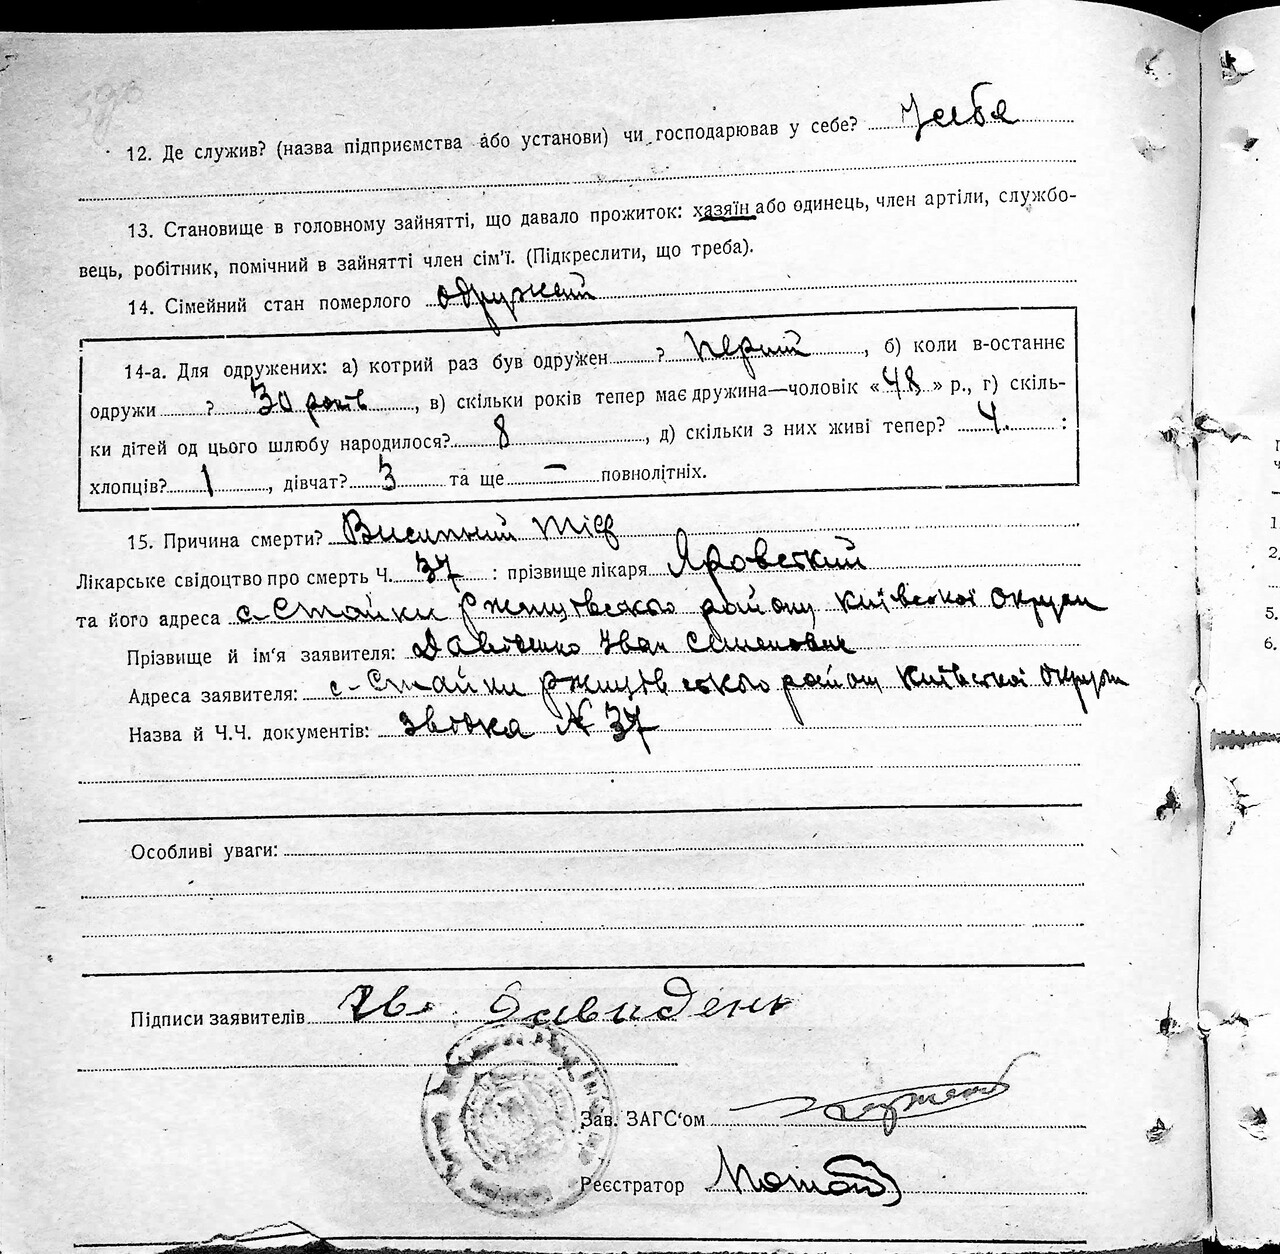 12. Де служив? (назва підприємства або установи) чи господарював у себе? У себя
13. Становище в головному зайнятті, що давало прожиток: хазяїн або одинець, член артіли, службо-
вець, робітник, помічний в зайнятті член сім'ї. (Підкреслити, що треба).
14. Сімейний стан померлого одружений
14-а. Для одружених: а) котрий раз був одружен ? перший, б) коли в-останнє
одружи ? 30 років, в) скільки років тепер має дружина—чоловік «48» р., г) скіль-
ки дітей од цього шлюбу народилося? 8, д) скільки з них живі тепер? 4 :
хлопців? 1, дівчат? 3 та ще — повнолітніх.
15. Причина смерти? Висипний тіф
Лікарське свідоцтво про смерть Ч. 37 : прізвище лікаря Яровський
та його адреса с-Стайки Ржищівського району Київської Округи
Прізвище й ім'я заявителя: Иван Семенович
Адреса заявителя: с-Стайки Ржищівського району Київської Округи
Назва й Ч.Ч. документів: № 37
Особливі уваги:
Підписи заявителів Ив. Давиденк
Зав. ЗАГС'ом
Реєстратор